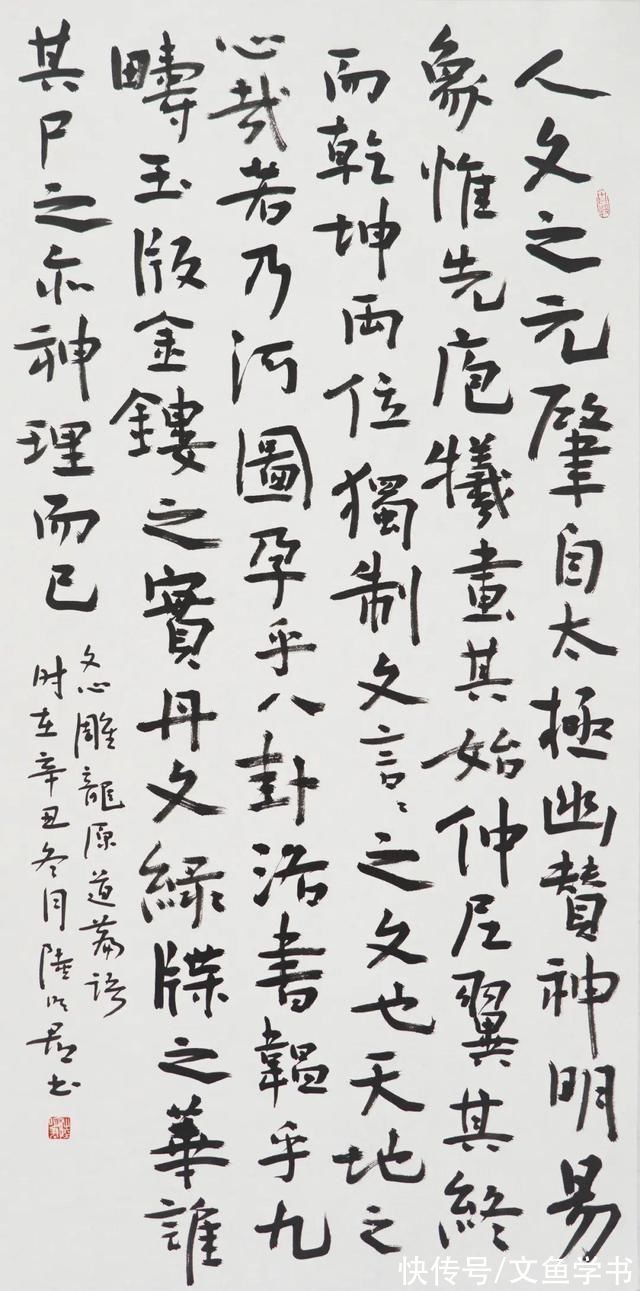 人文之元肇自太極幽贊神明易
象惟先庖犧畫其始仲尼翼其終
而乾坤兩位獨制文言〻之文也天地之
心哉若乃河圖孕乎八卦洛書韞乎九
疇玉版金鏤之實丹文綠牒之華誰
其尸之亦神理而已
文心雕龍原道篇語
时在辛丑冬月陸明君书
快传号/文鱼学书